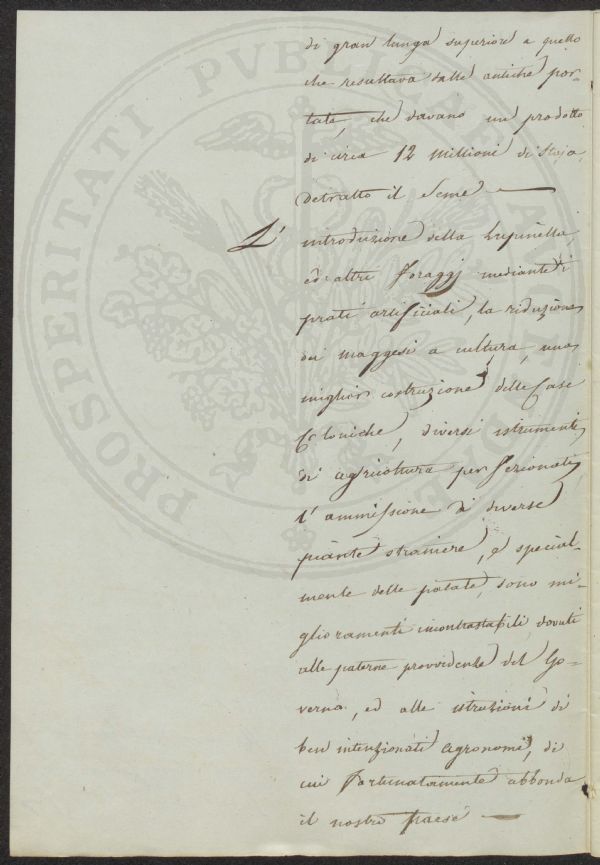 di gran lunga superiore a quello
che resultava dalle antiche por-
tate, che davano un prodotto
di circa 12 Millioni di Staja,
detratto il Seme —
L' introduzione della Lupinella,
ed altri Foraggj mediante i
prati artificiali, la riduzione
dei maggesi a cultura, una
miglior costruzione delle Case
Coloniche, diversi istrumenti
di agricoltura perfezionati,
l'ammissione di diverse
piante straniere, e special-
mente delle patate, sono mi-
glioramenti incontrastabili dovuti
alle paterne provvidenze del Go-
verno, ed alle istruzioni di
ben intenzionati agronomi, di
cui fortunatamente abbonda
il nostro paese —
PROSPERITATI PVBLICAE